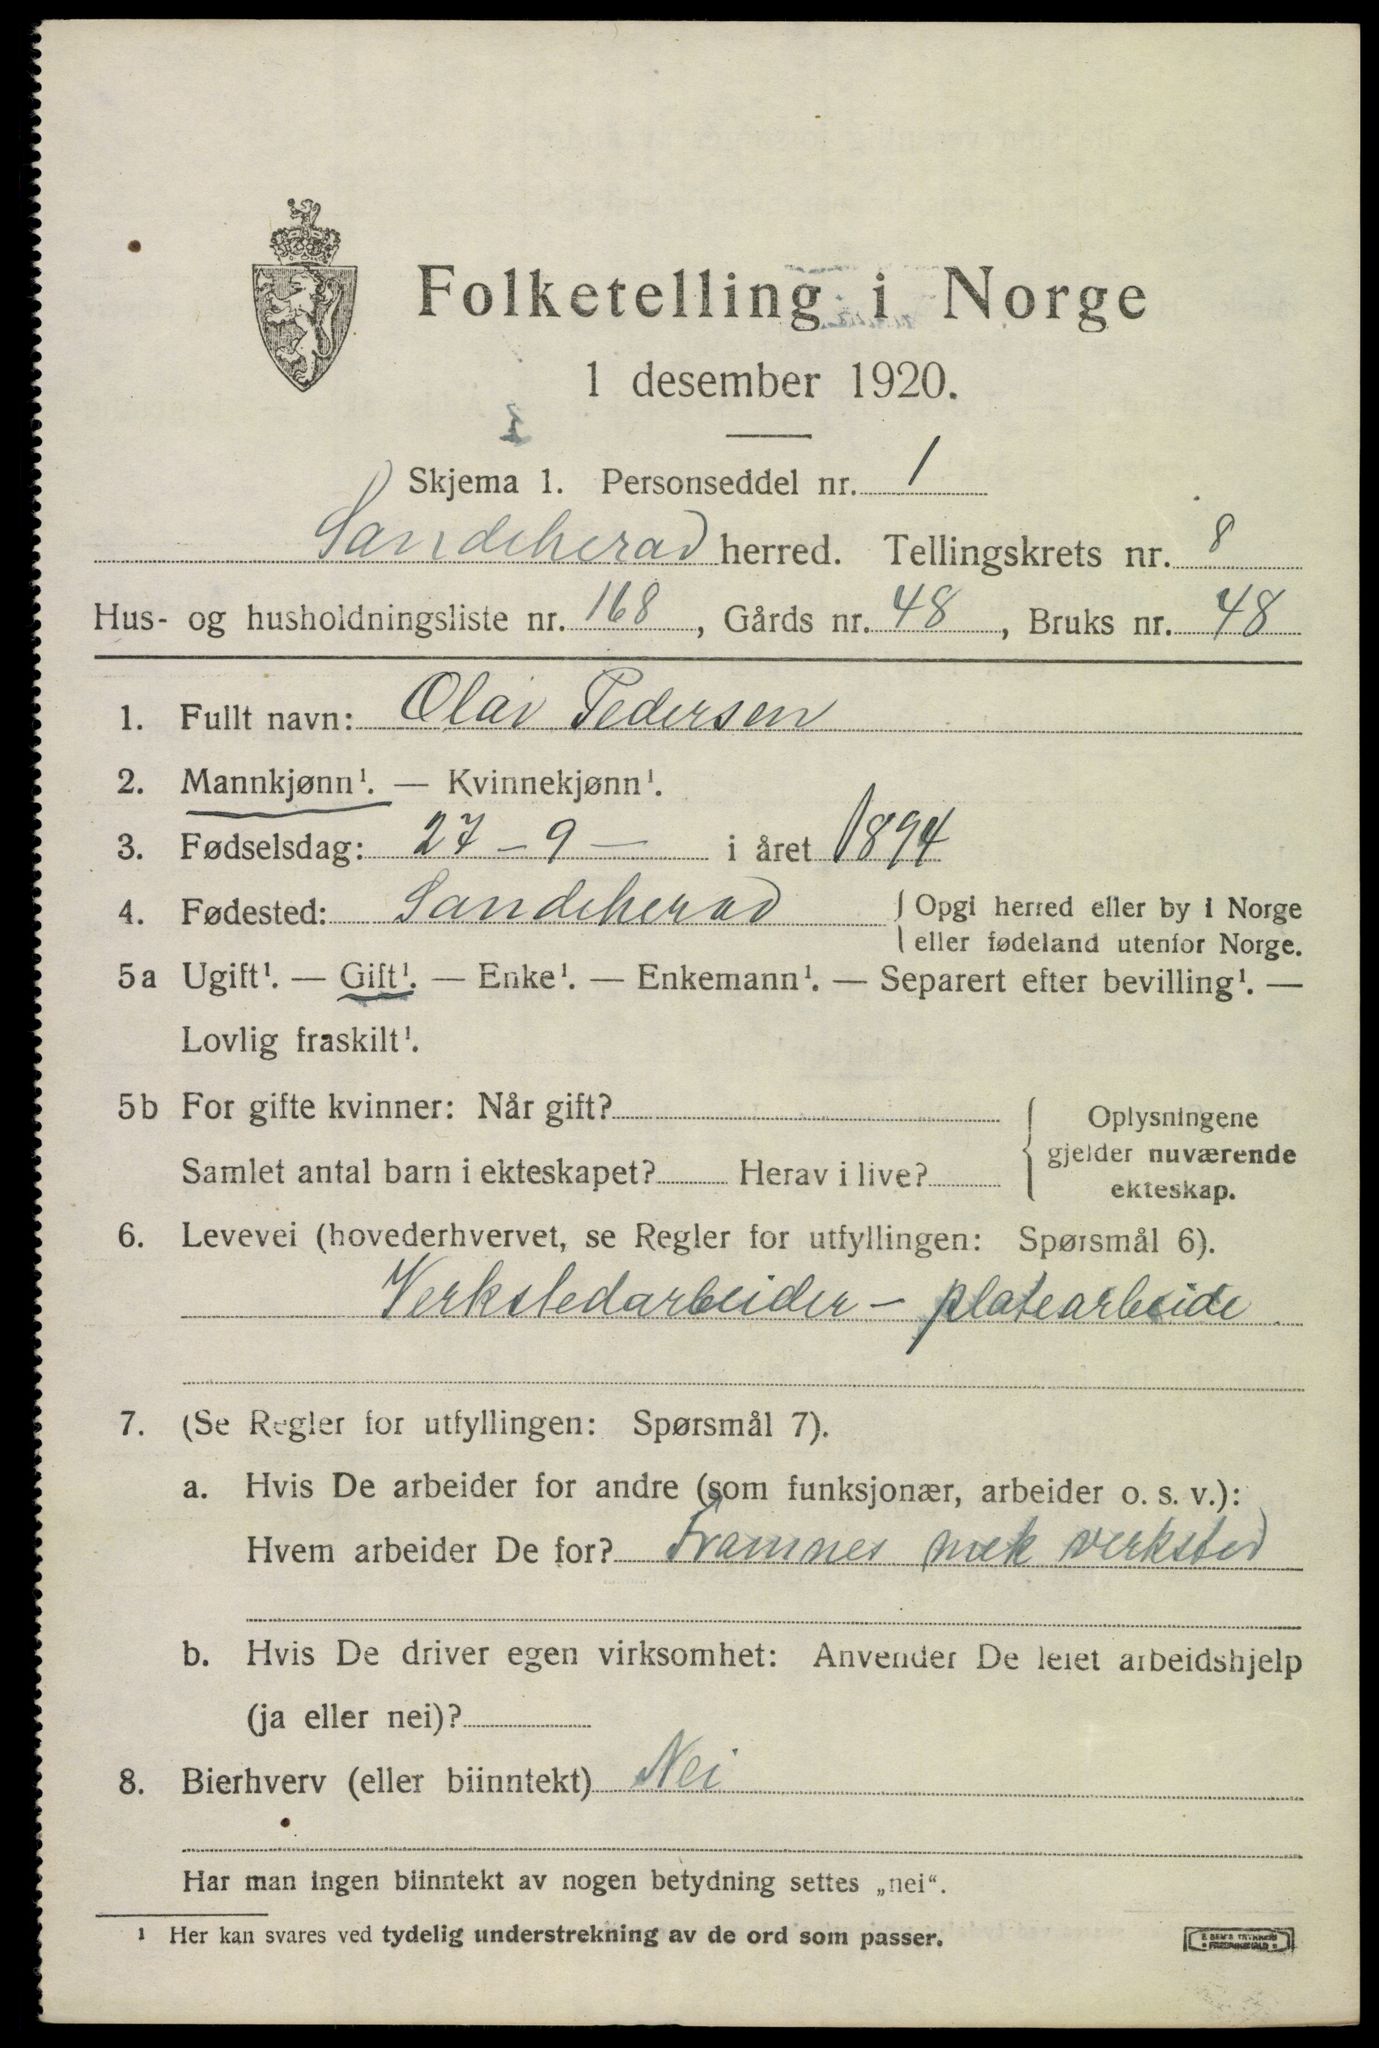 Folketelling i Norge
1 desember 1920.
Skjema 1. Personseddel nr. 1
Sandeherad herred. Tellingskrets nr. 8
Hus- og husholdningsliste nr. 168, Gårds nr. 48, Bruks nr. 48
1. Fullt navn: Olav Pedersen
2. Mannkjønn¹. — Kvinnekjønn¹.
3. Fødselsdag: 27 - 9 - i året 1894
4. Fødested: Sandeherad { Opgi herred eller by i Norge
{ eller fødeland utenfor Norge.
5a Ugift¹. — Gift¹. — Enke¹. — Enkemann¹. — Separert efter bevilling¹. —
Lovlig fraskilt¹.
5b For gifte kvinner: Når gift? { Oplysningene
gjelder nuværende
Samlet antal barn i ekteskapet? Herav i live?
ekteskap.
6. Levevei (hovederhvervet, se Regler for utfyllingen: Spørsmål 6).
Verkstedarbeider - platearbeide
7. (Se Regler for utfyllingen: Spørsmål 7).
a. Hvis De arbeider for andre (som funksjonær, arbeider o. s. v.):
Hvem arbeider De for? Framnes mek verksted
b. Hvis De driver egen virksomhet: Anvender De leiet arbeidshjelp
(ja eller nei)?
8. Bierhverv (eller biinntekt) Nei
Har man ingen biinntekt av nogen betydning settes „nei“.
¹ Her kan svares ved tydelig understrekning av de ord som passer.